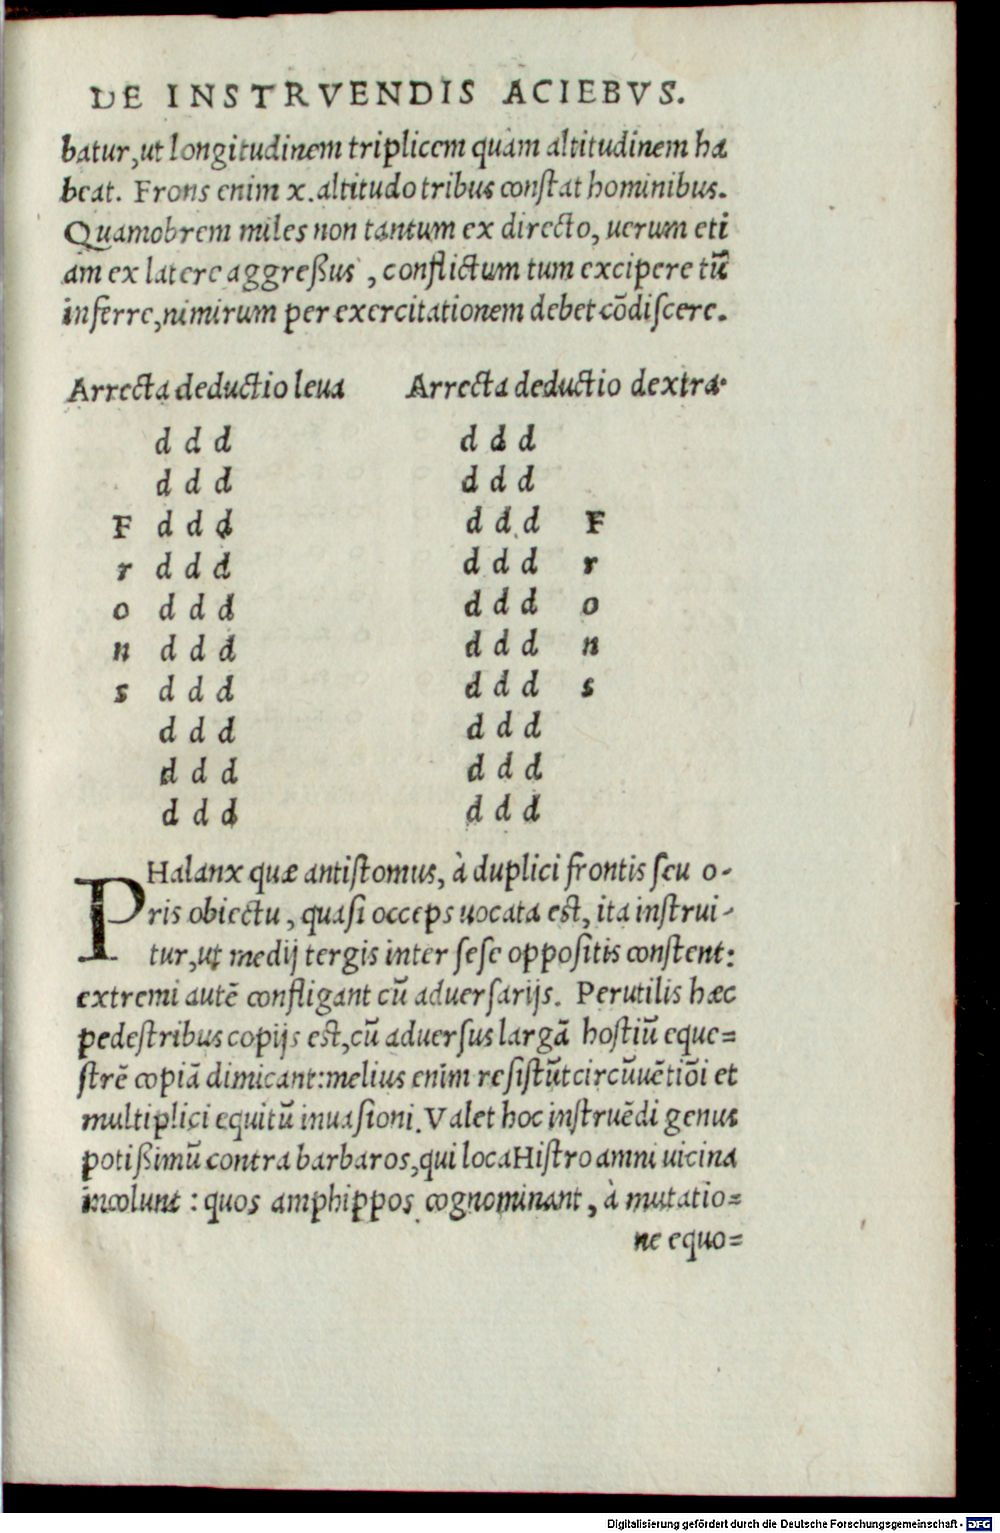 DE INSTRVENDIS ACIEBVS.
batur,ut longitudinem triplicem quàm altitudinem ha
beat. Frons enim x. altitudo tribus constat hominibus.
Quamobrem miles non tantum ex directo, uerum eti
am ex latere aggreßus, conflictum tum excipere tū
inferre,nimirum per exercitationem debet cōdiscere.
Arrecta deductio leua Arrecta deductio dextra.
d d d d d d
d d d d d d
F d d d d d d F
r d d d d d d r
o d d d d d d o
n d d d d d d n
s d d d d d d s
d d d d d d
d d d d d d
d d d d d d
PHalanx quæ antistomus, à duplici frontis seu o-
ris obiectu, quasi occeps uocata est, ita instrui-
tur,ut medij tergis inter sese oppositis constent:
extremi autē confligant cū aduersarijs. Perutilis hæc
pedestribus copijs est,cū aduersus largā hostiū eque=
strē copiā dimicant:melius enim resistūt circūuētiōi et
multiplici equitū inuasioni. Valet hoc instruēdi genus
potißimū contra barbaros,qui loca Histro amni uicina
incolunt : quos amphippos cognominant, à mutatio=
ne equo=
Digitalisierung gefördert durch die Deutsche Forschungsgemeinschaft - DFG